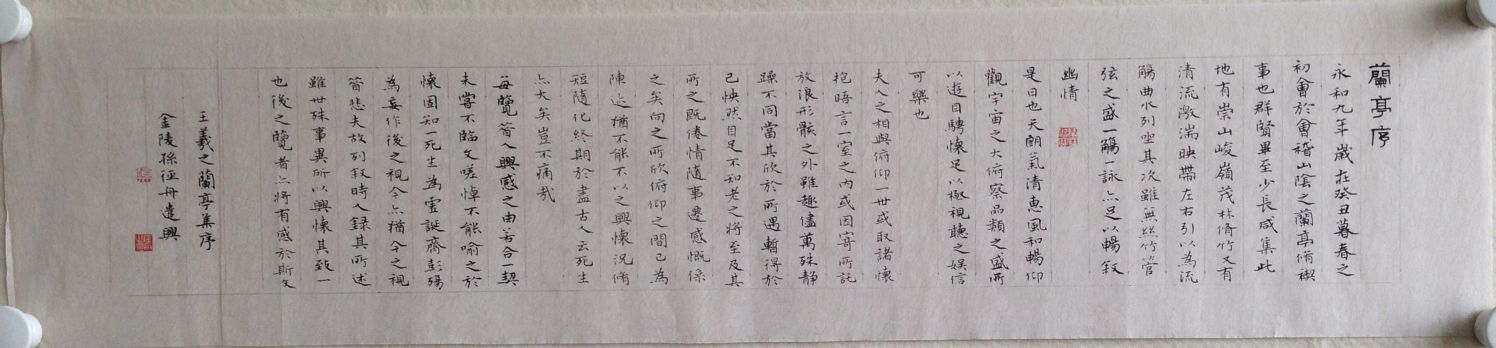 蘭亭序
永和九年歲在癸丑暮春之
初會於會稽山陰之蘭亭脩禊
事也群賢畢至少長咸集此
地有崇山峻嶺茂林脩竹又有
清流激湍映帶左右引以為流
觴曲水列坐其次雖無絲竹管
弦之盛一觴一詠亦足以暢敘
幽情
是日也天朗氣清惠風和暢仰
觀宇宙之大俯察品類之盛所
以遊目騁懷足以極視聽之娛信
可樂也
夫人之相與俯仰一世或取諸懷
抱晤言一室之內或因寄所託
放浪形骸之外雖趣儘萬殊靜
躁不同當其欣於所遇暫得於
己怏然自足不知老之將至及其
所之既倦情隨事遷感慨係
之矣向之所欣俯仰之間已為
陳迹猶不能不以之興懷況脩
短隨化終期於盡古人云死生
亦大矣豈不痛哉
每覽昔人興感之由若合一契
未嘗不臨文嗟悼不能喻之於
懷固知一死生為虛誕齊彭殤
為妄作後之視今亦猶今之視
昔悲夫故列敘時人錄其所述
雖世殊事異所以興懷其致一
也後之覽者亦將有感於斯文
王羲之蘭亭集序
金陵孫徑舟遣興